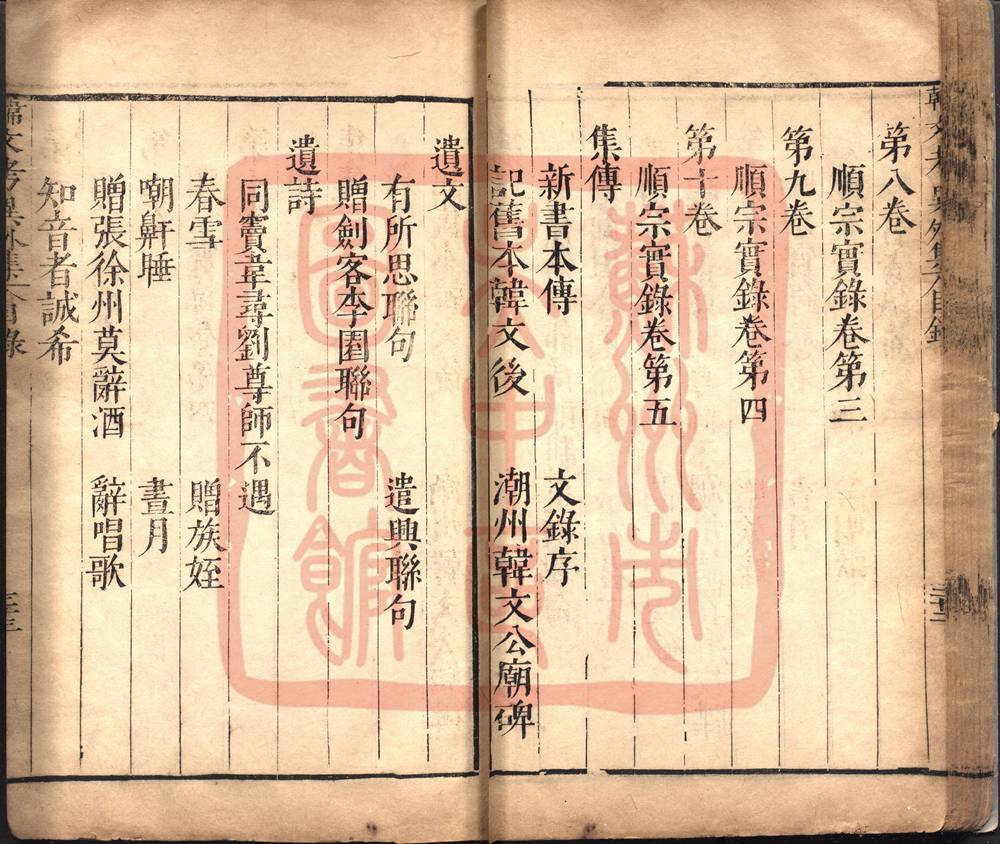 第八卷
順宗實錄卷第三
第九卷
順宗實錄卷第四
第十卷
順宗實錄卷第五
集傳
新書本傳 文錄序
記舊本韓文後 潮州韓文公廟碑
遺文
有所思聯句 遣興聯句
贈劍客李園聯句
遺詩
同竇韋尋劉尊師不遇
春雪 贈族姪
嘲鼾睡 晝月
贈張徐州莫辭酒 辭唱歌
知音者誠希